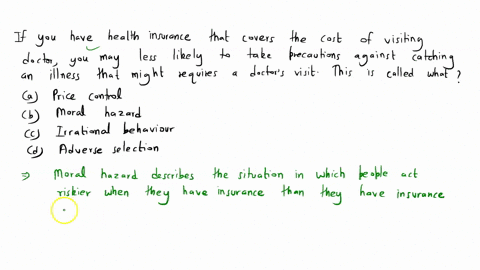 If you have health insurance that covers the cost of visiting
doctor, you may less likely to take precautions against catching
an illness that might requires a doctor's visit. This is called what?
(a) Price control
(b) Moral hazard
(c) Irrational behaviour
(d) Adverse selection
⇒ Moral hazard describes the situation in which people act
riskier when they have insurance than they have insurance